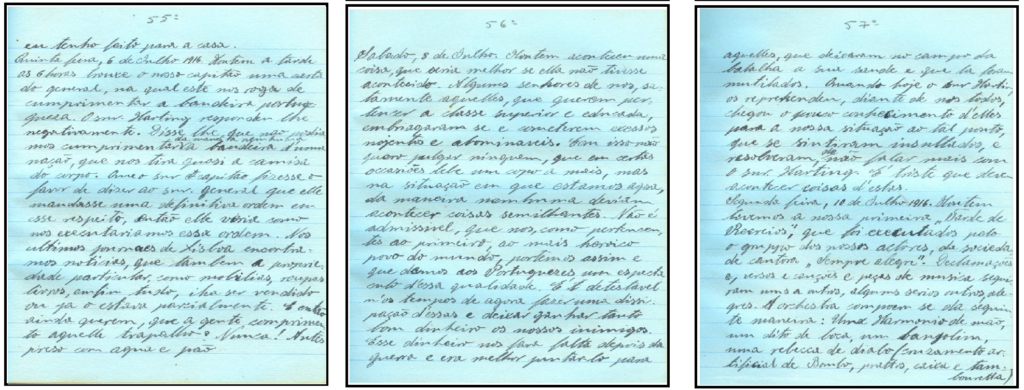 55=
eu tenho feito para a casa.
Quinta feira, 6 de Julho 1916. Hontem a tarde
as 6 horas trouxe o nosso capitão uma carta
do general, na qual este nos roga de
cumprimentar a bandeira portug-
queza. O snr. Harting respondeu lhe
negativamente. Disse lhe que não podia-
mos cumprimentar a bandeira d'uma
da maneira nenhuma
nação, que nos tira quasi a camisa
do corpo. Que o snr capitão fizesse o
favor de dizer ao snr. general que elle
mandasse uma definitiva ordem em
esse respeito, então elle veria como
nos executariamos essa ordem. Nos
ultimos jornaes de Lisboa encontra-
mos noticias, que tambem a proprie-
dade particular, como mobilias, roupas
livros, emfim tudo, iha ser vendido
ou ja o estava parcialmente. E então
ainda querem, que a gente comprimen-
to aquelle trapalho? Nunca! Antes
preso com agua e pão
56=
Sabado, 8 de Julho. Hontem aconteceu uma
coisa, que seria melhor se ella não tivesse
acontecido. Alguns senhores de nos, ju-
tamente aquelles, que querem per-
tencer a classe superior e educada,
embriagaram se e cometerem excessos
nojentos e abominaveis. Em isso não
quero julgar ninguem, que em certas
occasiões bebe um copo a mais, mas
na situação em que estamos agora,
da maneira nenhuma deviam
acontecer coisas semilhantes. Não é
admissivel, que nos, como pertencen-
tes ao primeiro, ao mais heroico
povo do mundo, portemos assim e
que damos aos Portuguezes um especta
culo d'essa qualidade. E é detestavel
n'os tempos de agora fazer uma dissi-
pação d'essas e deixar ganhar tanto
bom dinheiro os nossos inimigos.
Esse dinheiro nos fara falta depois da
guerra e era melhor juntarlo para
57=
aquelles, que deixaram no campo da
batalha a sua saude e que la foram
mutilados. Quando hoje o snr Harting
os reprehendeu, diante de nos todos,
chegou o pouco conhecimento d'elles
para a nossa situação ao tal ponto,
que se sintiram insultados, e
resolveram, de não falar mais com
o snr. Harting. É triste que devem
acontecer coisas d'estas.
Segunda feira, 10 de Julho 1916. Hontem
tivemos a nossa primeira "Tarde de
Recreios", que foi executados pelo
o gruppo dos nossos actores, da sociedade
de cantora "Sempre alegre". Declamações
e, versos e canções e peças de musica segui-
ram uns a outros, alguns serios outros ale-
gres. A orchestra compoem se da seguin-
te maneira: Uma Harmonio de mão,
um dito de boca, um bangolim,
uma rebecca de diabo (cruzamento ar-
tificial de Bombo, prattos, caixa e tam-
bouretta)